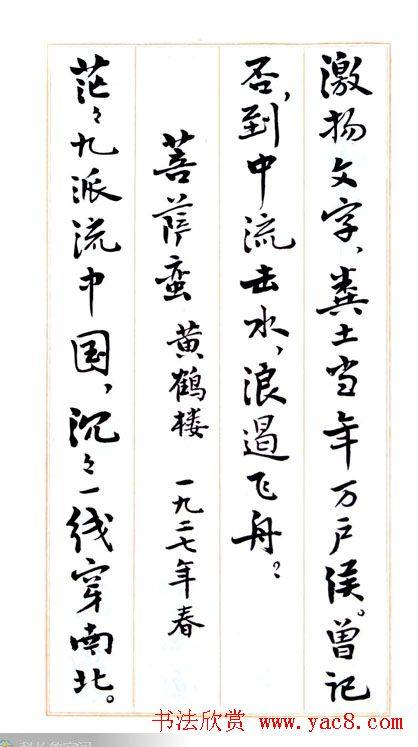 激扬文字、粪土当年万户侯。曾记
否，到中流击水，浪遏飞舟？
菩萨蛮 黄鹤楼 一九二七年春
茫々九派流中国，沉々一线穿南北。
书法欣赏 www.yac8.com